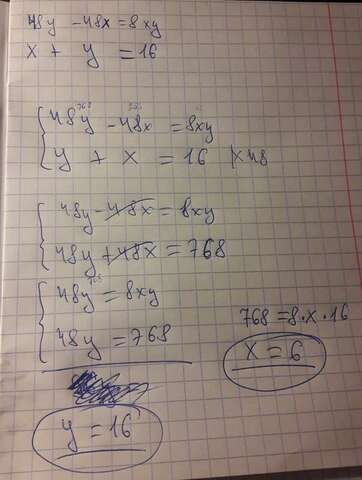 48y - 48x = 8xy
x + y = 16
48y - 48x = 8xy
y + x = 16 | x48
48y - 48x = 8xy
48y + 48x = 768
48y = 8xy
48y = 768
768 = 8 · x · 16
x = 6
y = 16